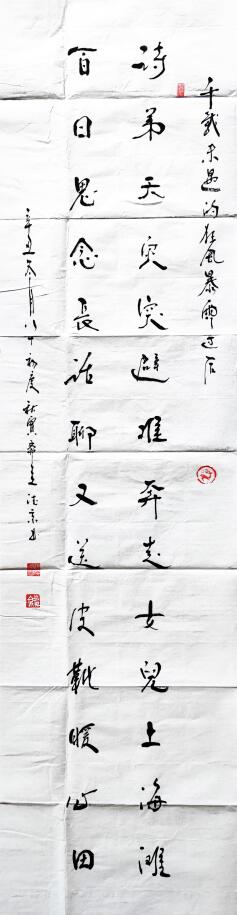 千载未遇的狂风暴雨过后
诗弟天灾突避难奔走女儿上海滩
百日思念长话聊又送皮靴暖心田
辛丑年月八十初度秋